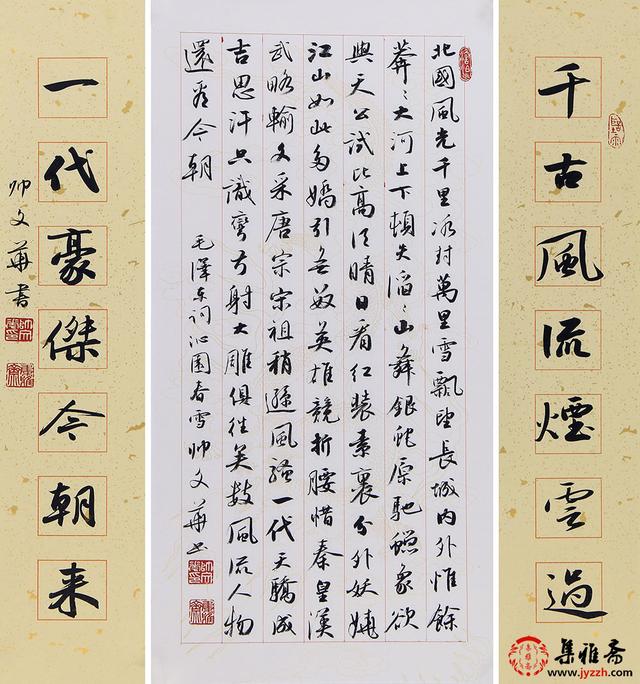 千古風流煙雲過
北國風光千里冰封萬里雪飄望長城内外惟餘
莽〻大河上下頓失滔〻山舞銀蛇原馳蠟象欲
與天公試比高须晴日看红装素裹分外妖嬈
江山如此多嬌引無数英雄競折腰惜秦皇漢
武略輸文采唐宗宋祖稍遜風騷一代天驕成
吉思汗只識彎弓射大雕俱往矣数風流人物
還看今朝
毛澤东詞沁園春雪帅文華书
一代豪傑今朝来
帅文華書
集雅斋
www.jyzzh.com